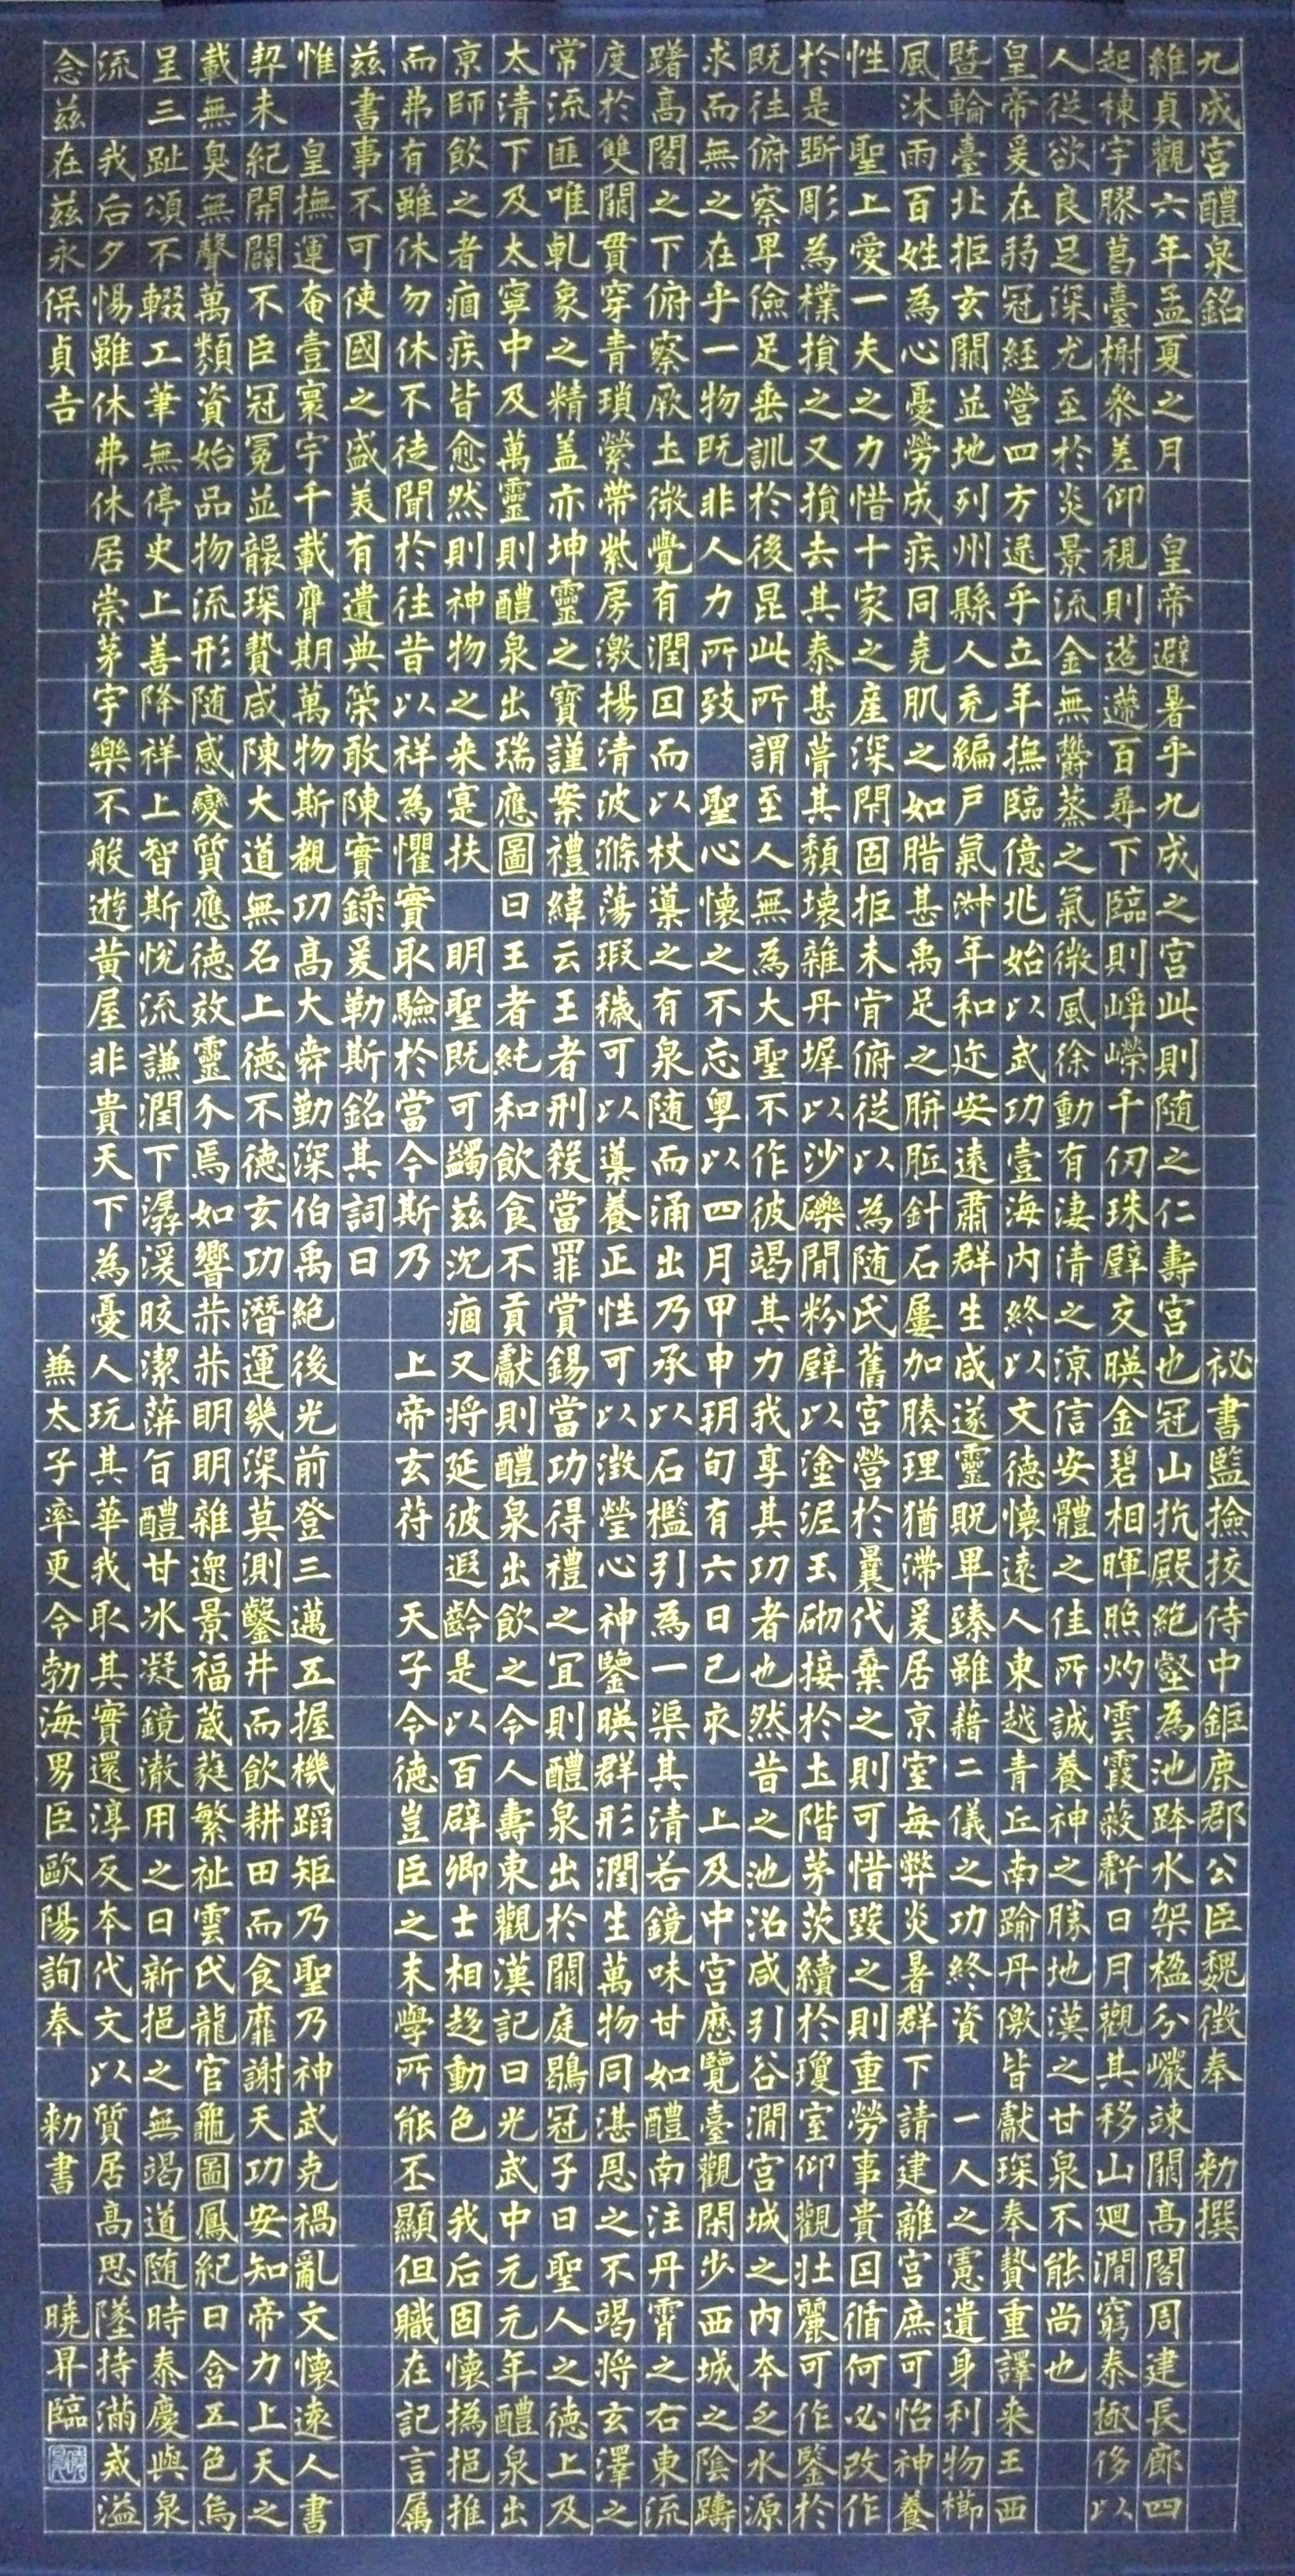 九成宮醴泉銘 祕書監撿挍侍中鉅鹿郡公臣魏徵奉 勑撰
維貞觀六年孟夏之月 皇帝避暑乎九成之宮此則随之仁壽宮也冠山抗殿絶壑為池跨水架楹分巖竦闕高閣周建長廊四
起棟宇膠葛臺榭叅差仰視則迢遰百尋下臨則崢嶸千仞珠壁交暎金碧相暉照灼雲霞蔽虧日月觀其移山廻澗窮泰極侈以
人從欲良足深尤至於炎景流金無鬱蒸之氣微風徐動有淒清之涼信安體之佳所誠養神之勝地漢之甘泉不能尚也
皇帝爰在弱冠經營四方逮乎立年撫臨億兆始以武功壹海內終以文德懷遠人東越青丘南踰丹儌皆獻琛奉贄重譯来王西
暨輪臺北拒玄闕並地列州縣人充編戶氣淑年和迩安遠肅群生咸遂靈貺畢臻雖藉二儀之功終資 一人之慮遺身利物櫛
風沐雨百姓為心憂勞成疾同堯肌之如腊甚禹足之胼胝針石屢加腠理猶滯爰居京室每弊炎暑群下請建離宮庶可怡神養
性 聖上愛一夫之力惜十家之產深閑固拒未肯俯從以為随氏舊宮營於曩代棄之則可惜毀之則重勞事貴因循何必改作
於是斲彫為樸損之又損去其泰甚葺其頹壞雜丹墀以沙礫間粉壁以塗泥玉砌接於土階茅茨續於瓊室仰觀壯麗可作鑒於
既往俯察卑儉足垂訓於後昆此所謂至人無為大聖不作彼竭其力我享其功者也然昔之池沼咸引谷澗宮城之內本乏水源
求而無之在乎一物既非人力所致 聖心懷之不忘粵以四月甲申朔旬有六日己亥 上及中宮歷覽臺觀閑步西城之陰躊
躇高閣之下俯察厥土微覺有潤因而以杖導之有泉随而涌出乃承以石檻引為一渠其清若鏡味甘如醴南注丹霄之右東流
度於雙闕貫穿青瑣縈帶紫房激揚清波滌蕩瑕穢可以導養正性可以澂瑩心神鑒暎群形潤生萬物同湛恩之不竭将玄澤之
常流匪唯乹象之精盖亦坤靈之寶謹案禮緯云王者刑殺當罪賞錫當功得禮之宜則醴泉出於闕庭鶡冠子曰聖人之德上及
太清下及太寧中及萬靈則醴泉出瑞應圖曰王者純和飲食不貢獻則醴泉出飲之令人壽東觀漢記曰光武中元元年醴泉出
京師飲之者痼疾皆愈然則神物之来寔扶 明聖既可蠲茲沉痼又将延彼遐齡是以百辟卿士相趍動色 我后固懷撝挹推
而弗有雖休勿休不徒聞於往昔以祥為懼實取驗於當今斯乃 上帝玄符 天子令德豈臣之末學所能丕顯但職在記言属
茲書事不可使國之盛美有遺典策敢陳實錄爰勒斯銘其詞曰
惟 皇撫運奄壹寰宇千載膺期萬物斯覩功高大舜勤深伯禹絶後光前登三邁五握機蹈矩乃聖乃神武克禍亂文懷遠人書
契未紀開闢不臣冠冕並襲琛贄咸陳大道無名上德不德玄功潛運幾深莫測鑿井而飲耕田而食靡謝天功安知帝力上天之
載無臭無聲萬類資始品物流形随感變質應德效靈介焉如響赫赫明明雜遝景福葳蕤繁祉雲氏龍官龜圖鳳紀日含五色烏
呈三趾頌不輟工筆無停史上善降祥上智斯悅流謙潤下潺湲皎潔蓱旨醴甘冰凝鏡澈用之日新挹之無竭道随時泰慶與泉
流 我后夕惕雖休弗休居崇茅宇樂不般遊黃屋非貴天下為憂人玩其華我取其實還淳反本代文以質居高思墜持滿戒溢
念茲在茲永保貞吉 兼太子率更令勃海男臣歐陽詢奉 勑書 曉昇臨